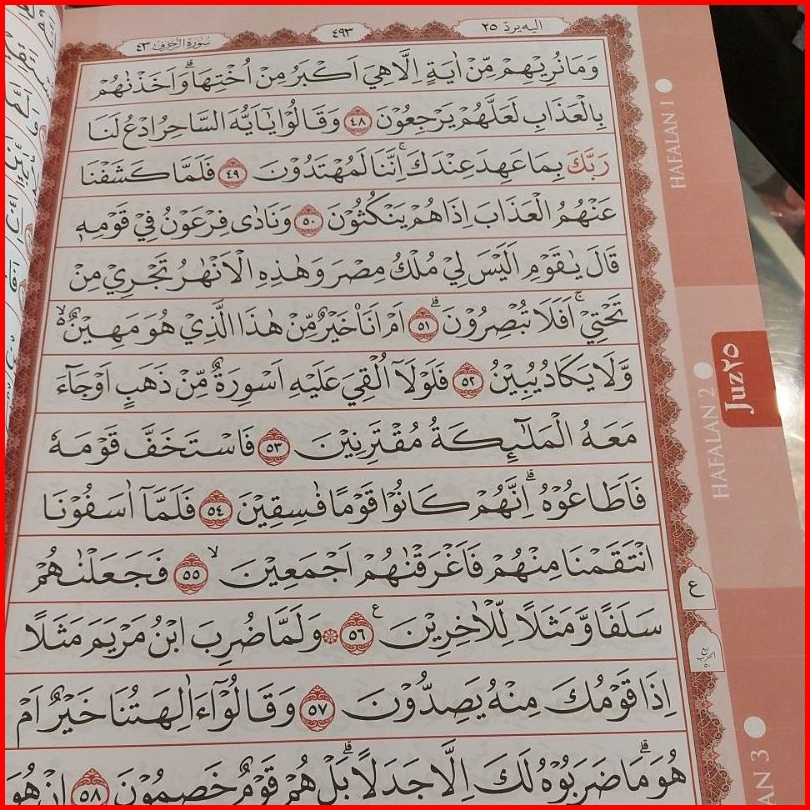 اليه يردّ ٢٥
٤٩٣
سُوْرَةُ الزُّخْرُف ٤٣
وَمَا نُرِيْهِمْ مِّنْ اٰيَةٍ اِلَّا هِيَ اَكْبَرُ مِنْ اُخْتِهَاۗ وَاَخَذْنٰهُمْ
بِالْعَذَابِ لَعَلَّهُمْ يَرْجِعُوْنَ ٤٨ وَقَالُوْا يٰٓاَيُّهَ السَّاحِرُ ادْعُ لَنَا
رَبَّكَ بِمَا عَهِدَ عِنْدَكَۚ اِنَّنَا لَمُهْتَدُوْنَ ٤٩ فَلَمَّا كَشَفْنَا
عَنْهُمُ الْعَذَابَ اِذَا هُمْ يَنْكُثُوْنَ ٥٠ وَنَادٰى فِرْعَوْنُ فِيْ قَوْمِهٖ
قَالَ يٰقَوْمِ اَلَيْسَ لِيْ مُلْكُ مِصْرَ وَهٰذِهِ الْاَنْهٰرُ تَجْرِيْ مِنْ
تَحْتِيْۚ اَفَلَا تُبْصِرُوْنَۗ ٥١ اَمْ اَنَا۠ خَيْرٌ مِّنْ هٰذَا الَّذِيْ هُوَ مَهِيْنٌ ەۙ
وَّلَا يَكَادُ يُبِيْنُ ٥٢ فَلَوْلَآ اُلْقِيَ عَلَيْهِ اَسْوِرَةٌ مِّنْ ذَهَبٍ اَوْ جَاۤءَ
مَعَهُ الْمَلٰۤىِٕكَةُ مُقْتَرِنِيْنَ ٥٣ فَاسْتَخَفَّ قَوْمَهٗ
فَاَطَاعُوْهُۗ اِنَّهُمْ كَانُوْا قَوْمًا فٰسِقِيْنَ ٥٤ فَلَمَّآ اٰسَفُوْنَا
انْتَقَمْنَا مِنْهُمْ فَاَغْرَقْنٰهُمْ اَجْمَعِيْنَۙ ٥٥ فَجَعَلْنٰهُمْ
سَلَفًا وَّمَثَلًا لِّلْاٰخِرِيْنَ ࣖ ٥٦ ۞ وَلَمَّا ضُرِبَ ابْنُ مَرْيَمَ مَثَلًا
اِذَا قَوْمُكَ مِنْهُ يَصِدُّوْنَ ٥٧ وَقَالُوْٓا ءَاٰلِهَتُنَا خَيْرٌ اَمْ
هُوَۗ مَا ضَرَبُوْهُ لَكَ اِلَّا جَدَلًاۗ بَلْ هُمْ قَوْمٌ خَصِمُوْنَ ٥٨ اِنْ هُوَ
ع
HAFALAN 1
HAFALAN 2
Juz ٢٥
AN 3